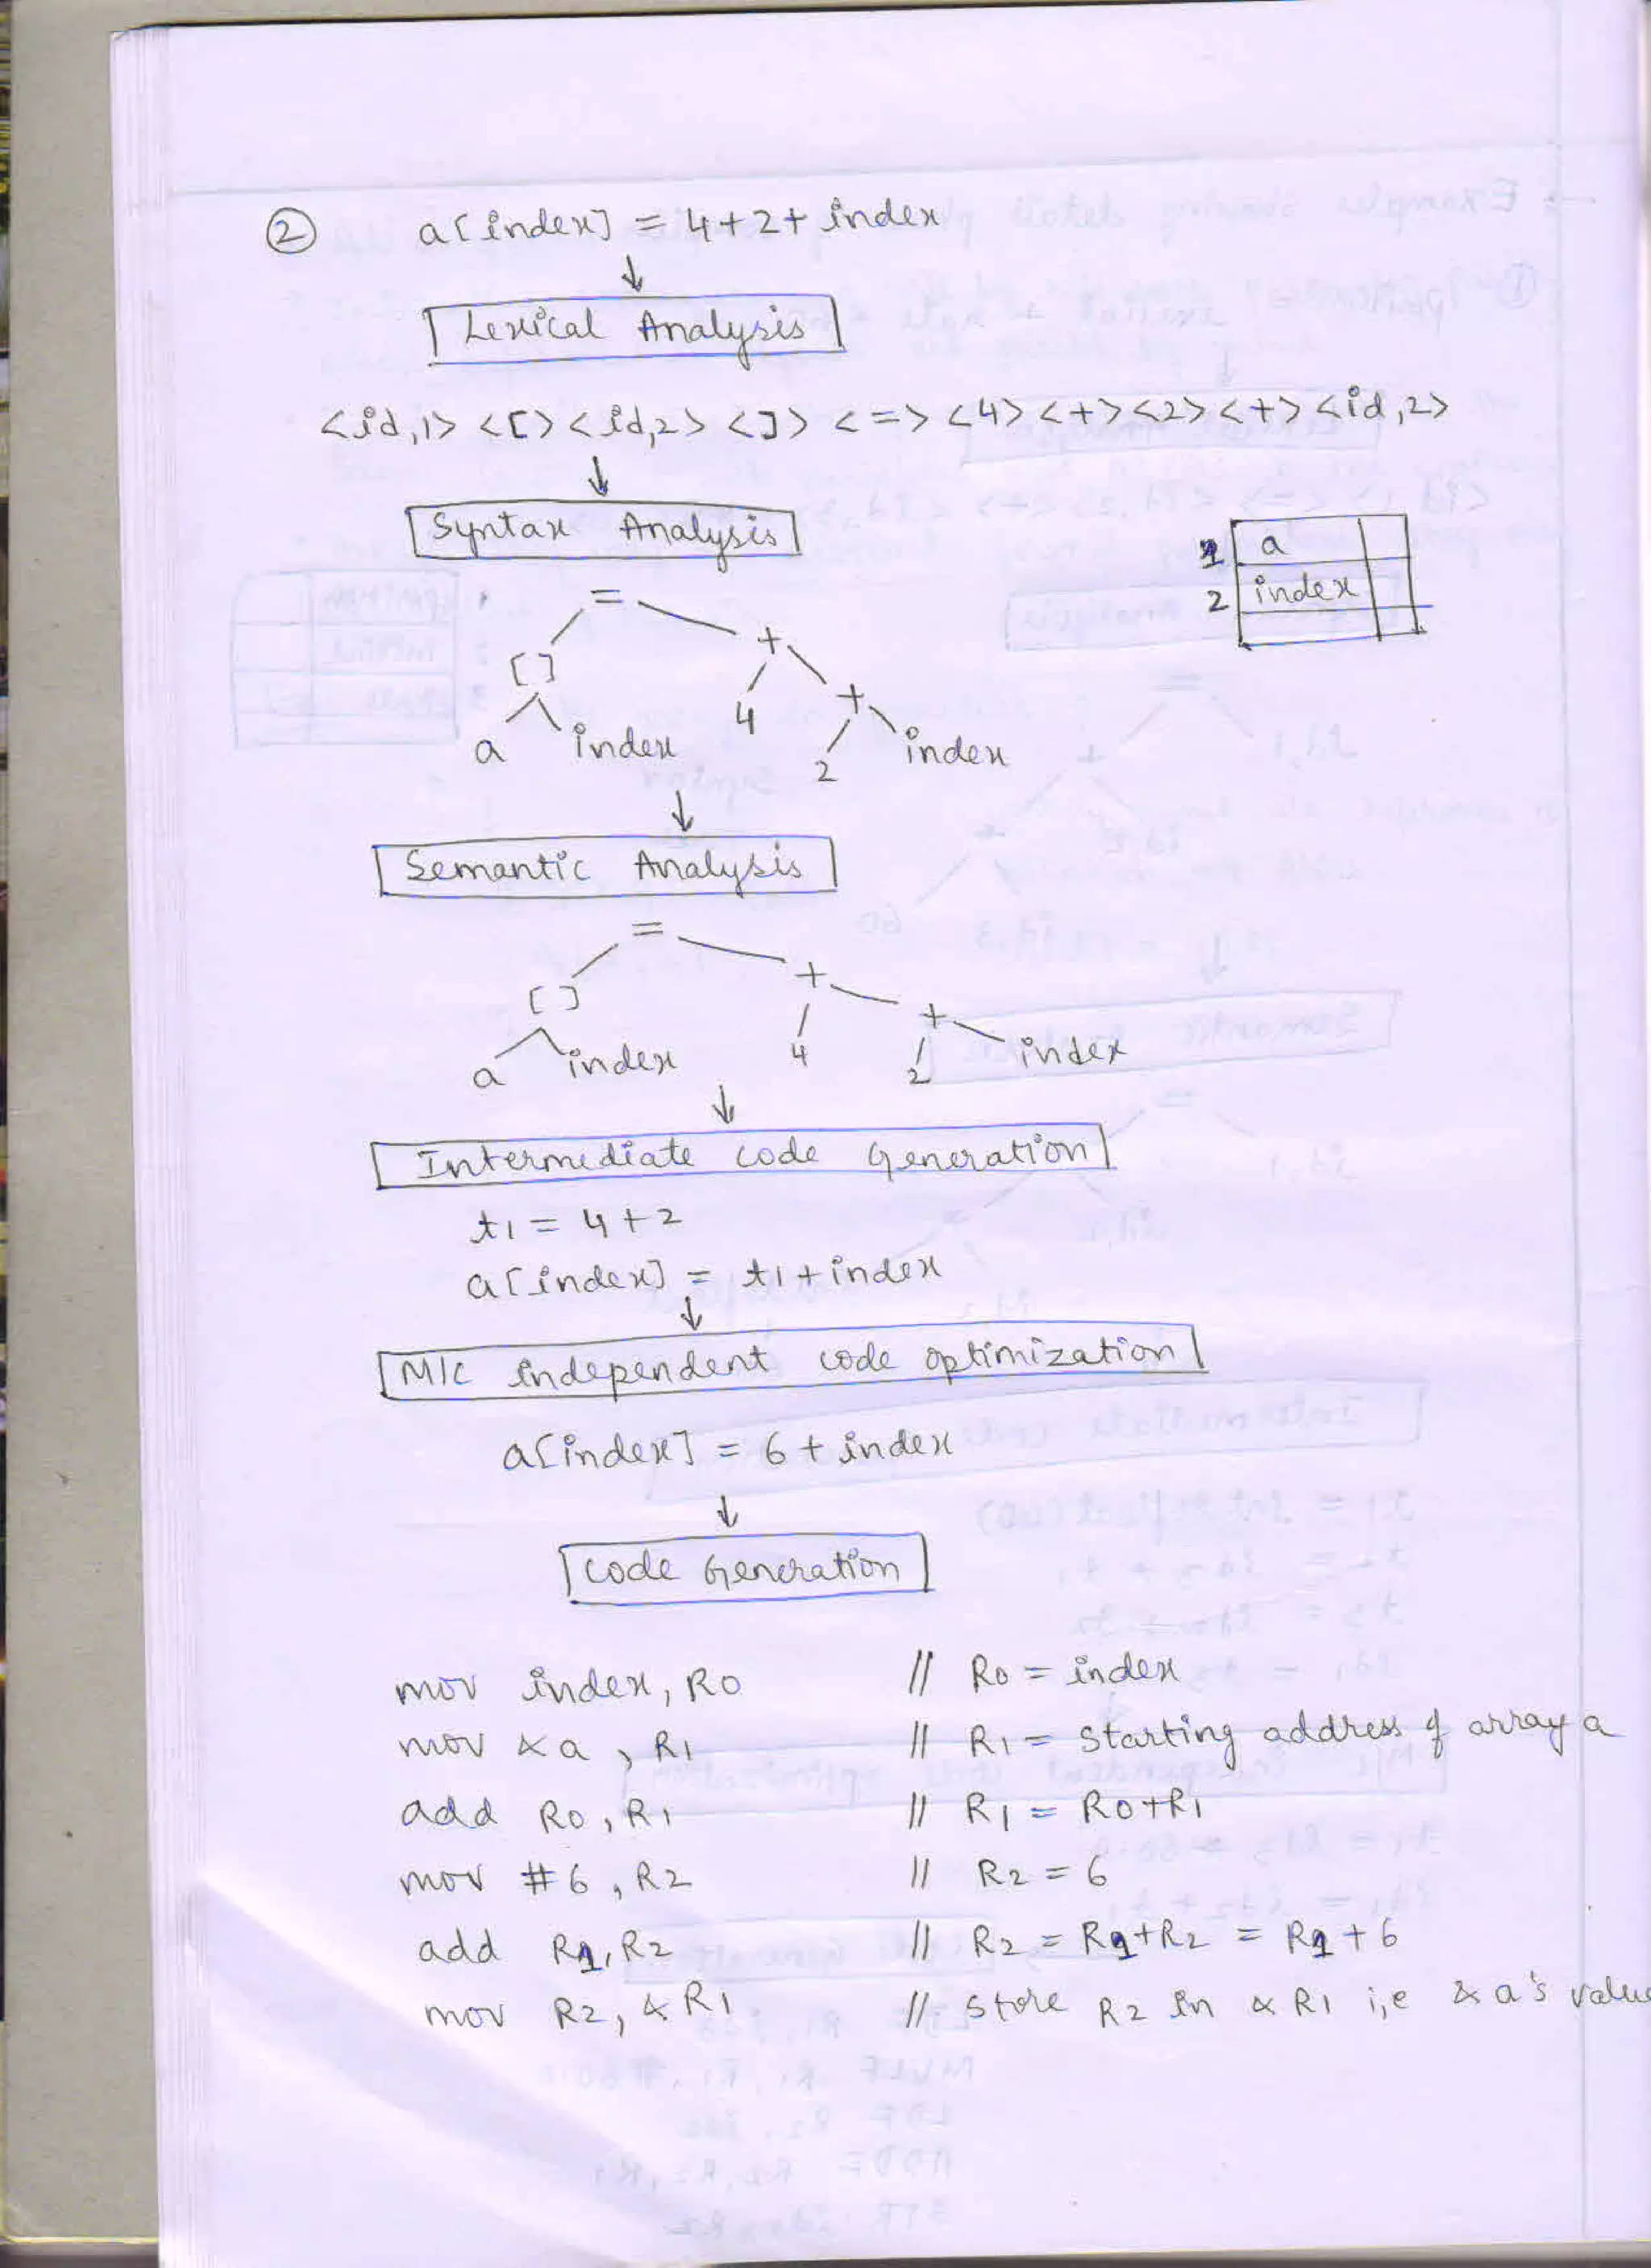 ② a[index] = 4+2+index
↓
Lexical Analysis
<id,1> <[> <id,2> <]> <=> <4> <+> <2> <+> <id,2>
↓
Syntax Analysis
1 a
2 index
=
[] +
4 +
a index 2 index
↓
Semantic Analysis
=
[] +
a index 4 + 
2 index
↓
Intermediate code Generation
t1 = 4+2
a[index] = t1+index
↓
M/C independent code optimization
a[index] = 6+index
↓
Code Generation
mov index, R0 // R0 = index
mov &a, R1 // R1 = Starting address of array a
add R0, R1 // R1 = R0+R1
mov #6, R2 // R2 = 6
add R1, R2 // R2 = R1+R2 = R1+6
mov R2, &R1 // Store R2 in &R1 i,e &a's value